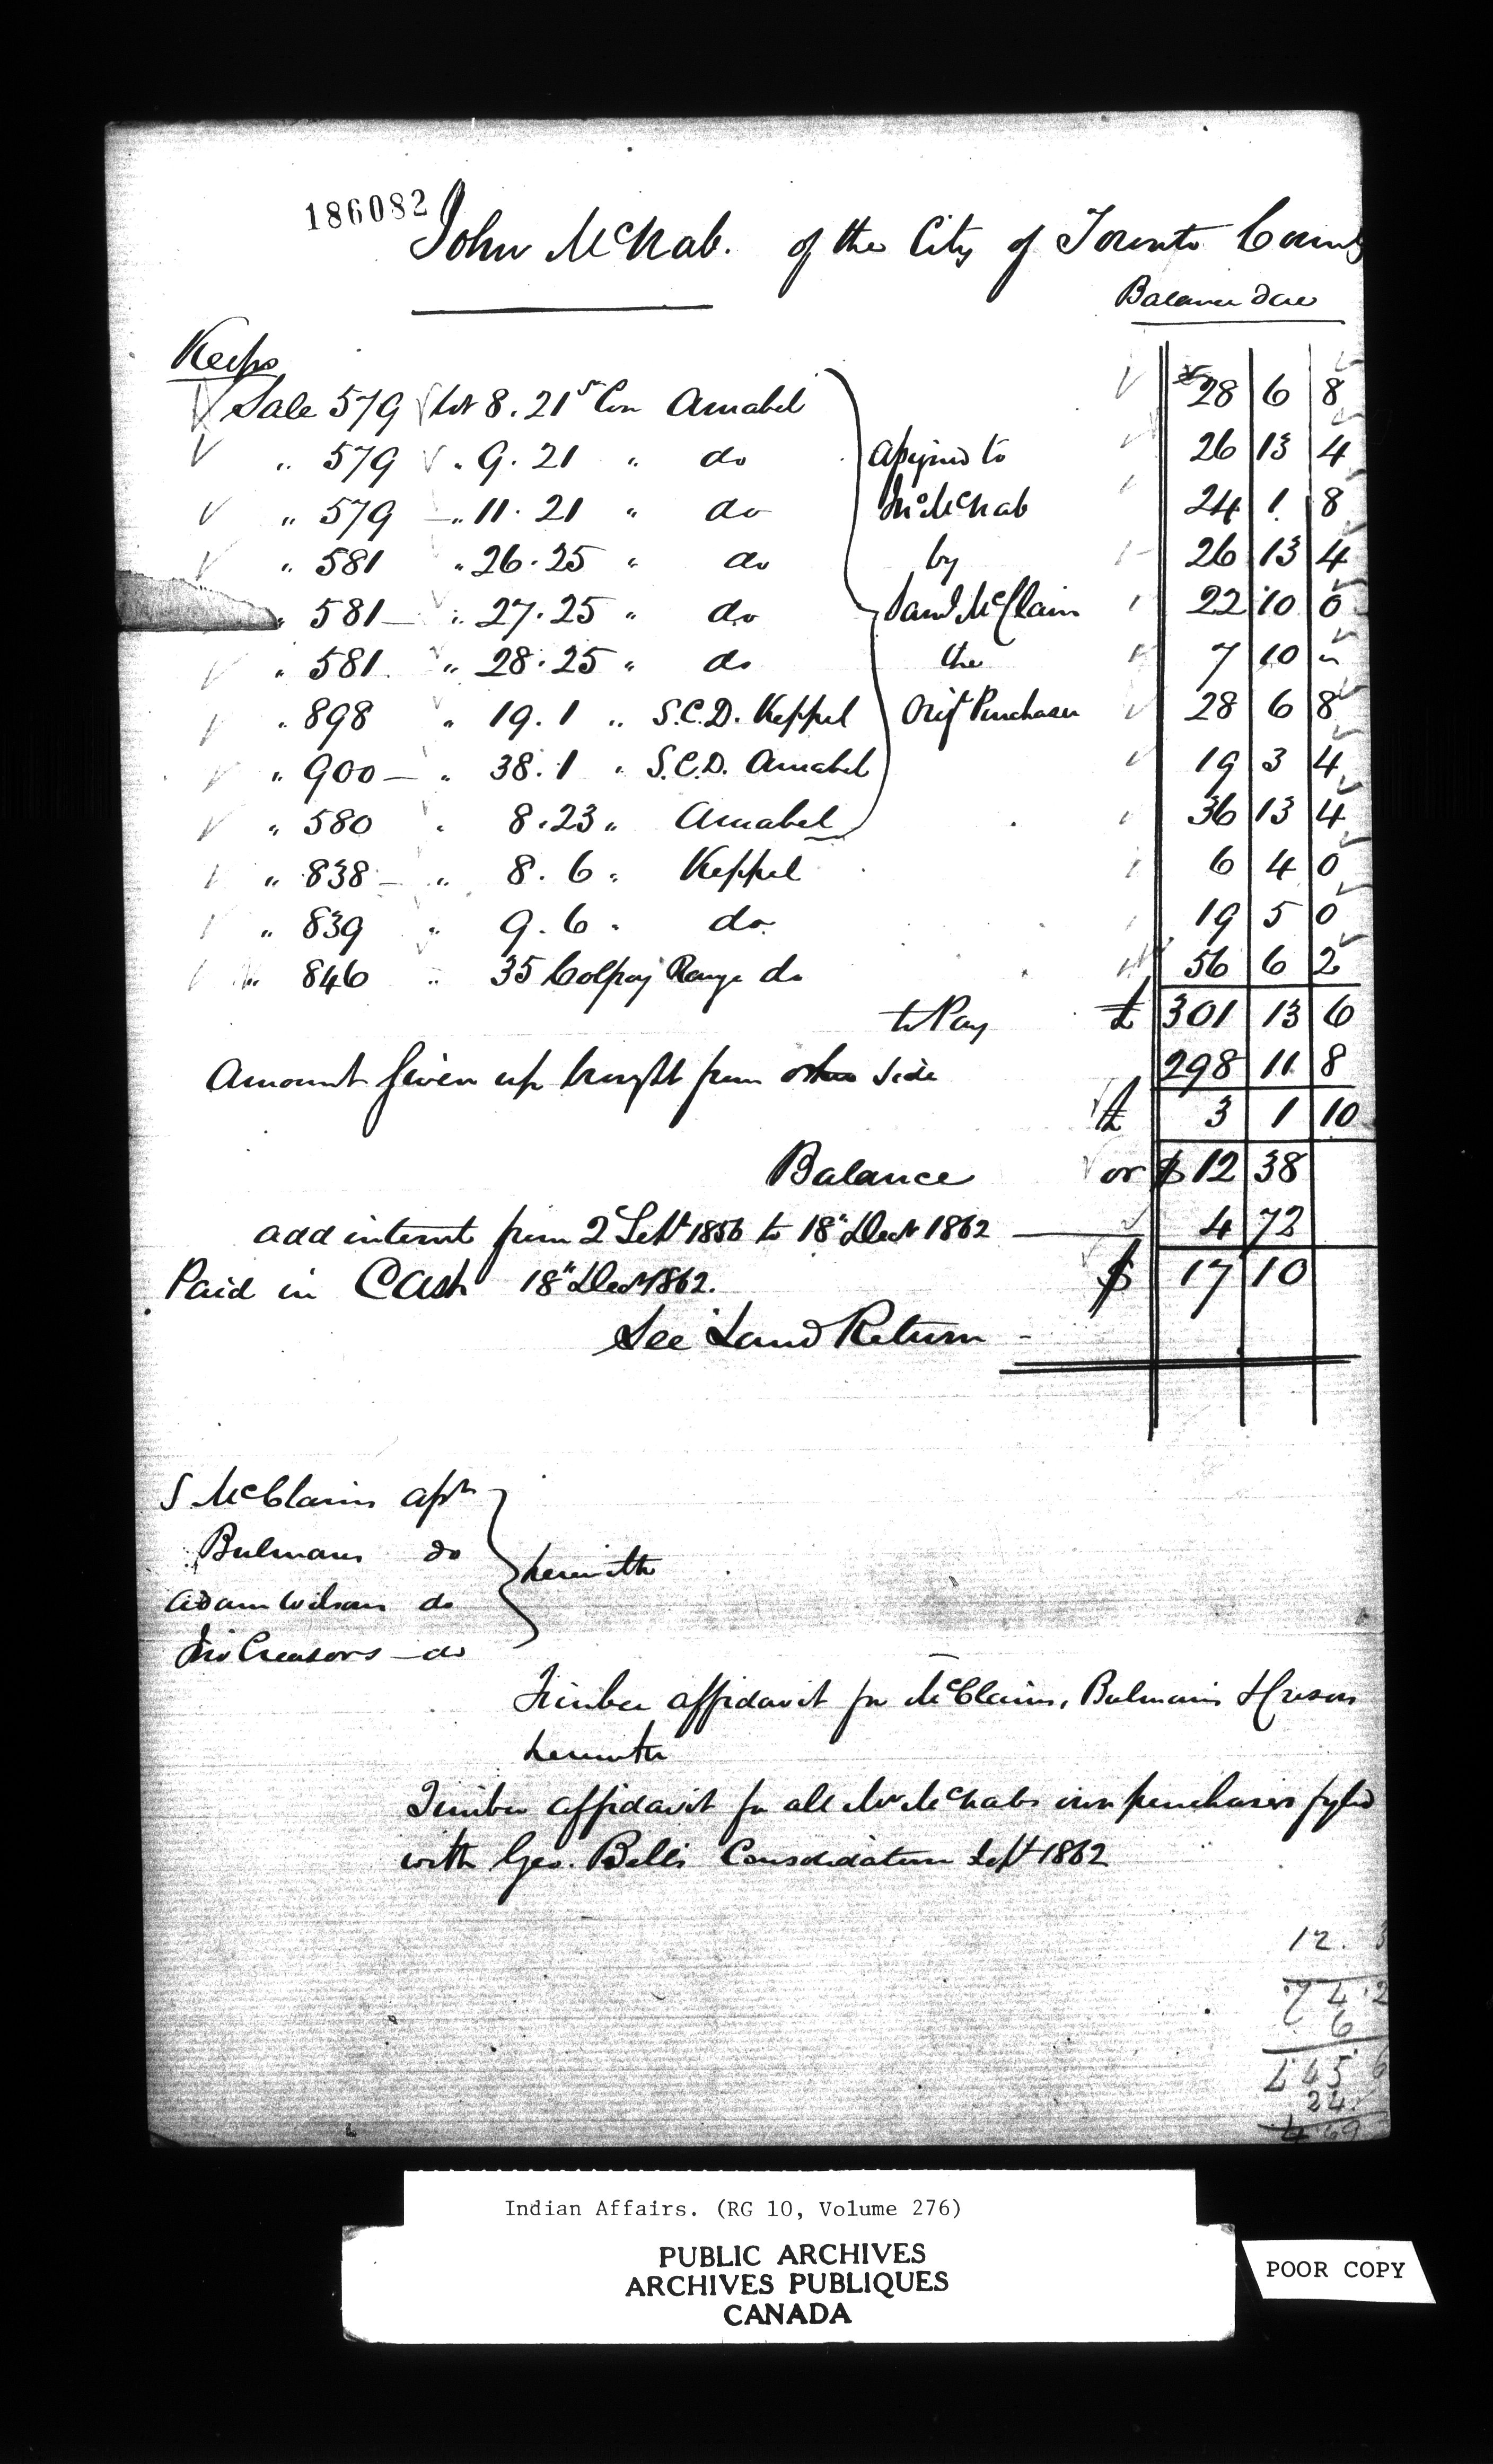 186082
John McNab. of the City of Toronto County
Balance due
Keeps
Sale 579 Lot 8. 21st Con Amabel 28 6 8
" 579 " 9. 21 " do Assigned to 26 13 4
" 579 " 11. 21 " do Jno McNab 24 1 8
" 581 " 26. 25 " do by 26 13 4
" 581 " 27. 25 " do Saml McClain 22 10 0
" 581 " 28. 25 " do the 7 10 "
" 898 " 19. 1 " S.C.D. Keppel Orig Purchaser 28 6 8
" 900 " 38. 1 " S.C.D. Amabel 19 3 4
" 580 " 8. 23 " Amabel 36 13 4
" 838 " 8. 6 " Keppel 6 4 0
" 839 " 9. 6 " do 19 5 0
" 846 " 35 Colpoy Range do 56 6 2
to Pay £ 301 13 6
Amount given up brought from other side 298 11 8
£ 3 1 10
Balance or $ 12 38
add interest from 2 Sept 1856 to 18" Decr 1862 4 72
Paid in Cash 18" Decr 1862. $ 17 10
See Land Return
S McClains asst
Bulmans do
Adam Wilson do
Jno Creasors do
herewith
Timber affidavit for McClains, Bulmans &
herewith
Timber affidavit for all Mr McNabs own purchases fyled
with Geo. Bells Consolidation Sept 1862
12. 3
74.2
6
445 6
24
4.69
Indian Affairs. (RG 10, Volume 276)
PUBLIC ARCHIVES
ARCHIVES PUBLIQUES
CANADA
POOR COPY